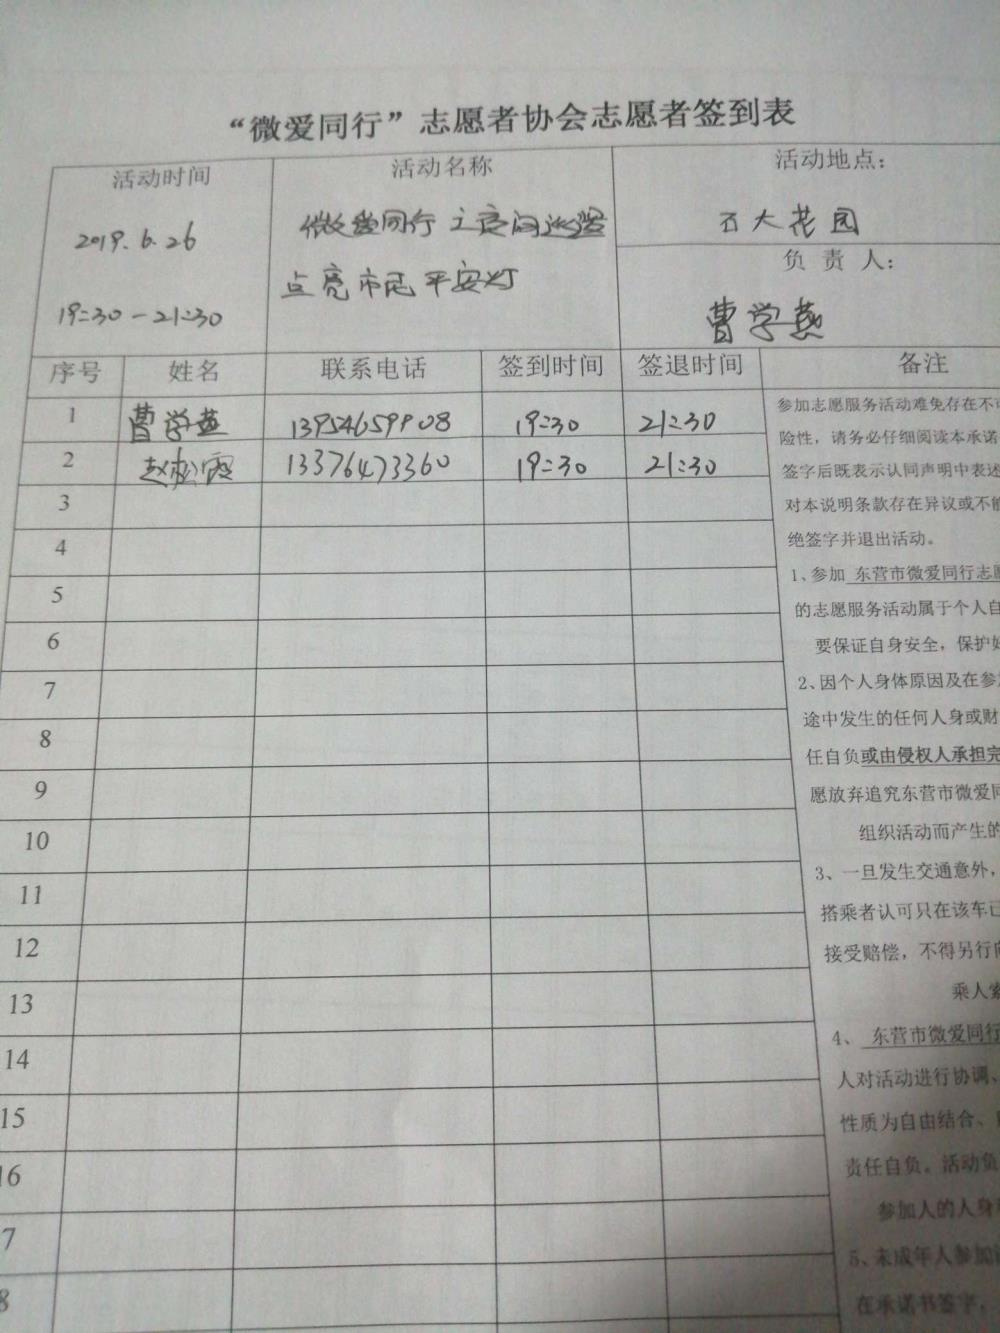 “微爱同行”志愿者协会志愿者签到表
活动时间
2019.6.26
19:30-21:30
活动名称
微爱同行 夜间巡逻
点亮市民平安灯
活动地点：
石大花园
负 责 人：
曹学燕
序号 姓名 联系电话 签到时间 签退时间 备注
1 曹学燕 13954659908 19:30 21:30
2 赵松霞 13376473360 19:30 21:30
3
4
5
6
7
8
9
10
11
12
13
14
15
16
7
8
参加志愿服务活动难免存在不可
险性，请务必仔细阅读本承诺
签字后既表示认同声明中表述
对本说明条款存在异议或不能
绝签字并退出活动。
1、参加 东营市微爱同行志愿
的志愿服务活动属于个人自
要保证自身安全，保护好
2、因个人身体原因及在参加
途中发生的任何人身或财
任自负或由侵权人承担完
愿放弃追究东营市微爱同
组织活动而产生的
3、一旦发生交通意外，
搭乘者认可只在该车已
接受赔偿，不得另行向
乘人索
4、 东营市微爱同行
人对活动进行协调、
性质为自由结合、
责任自负。活动负
参加人的人身
5、未成年人参加
在承诺书签字，